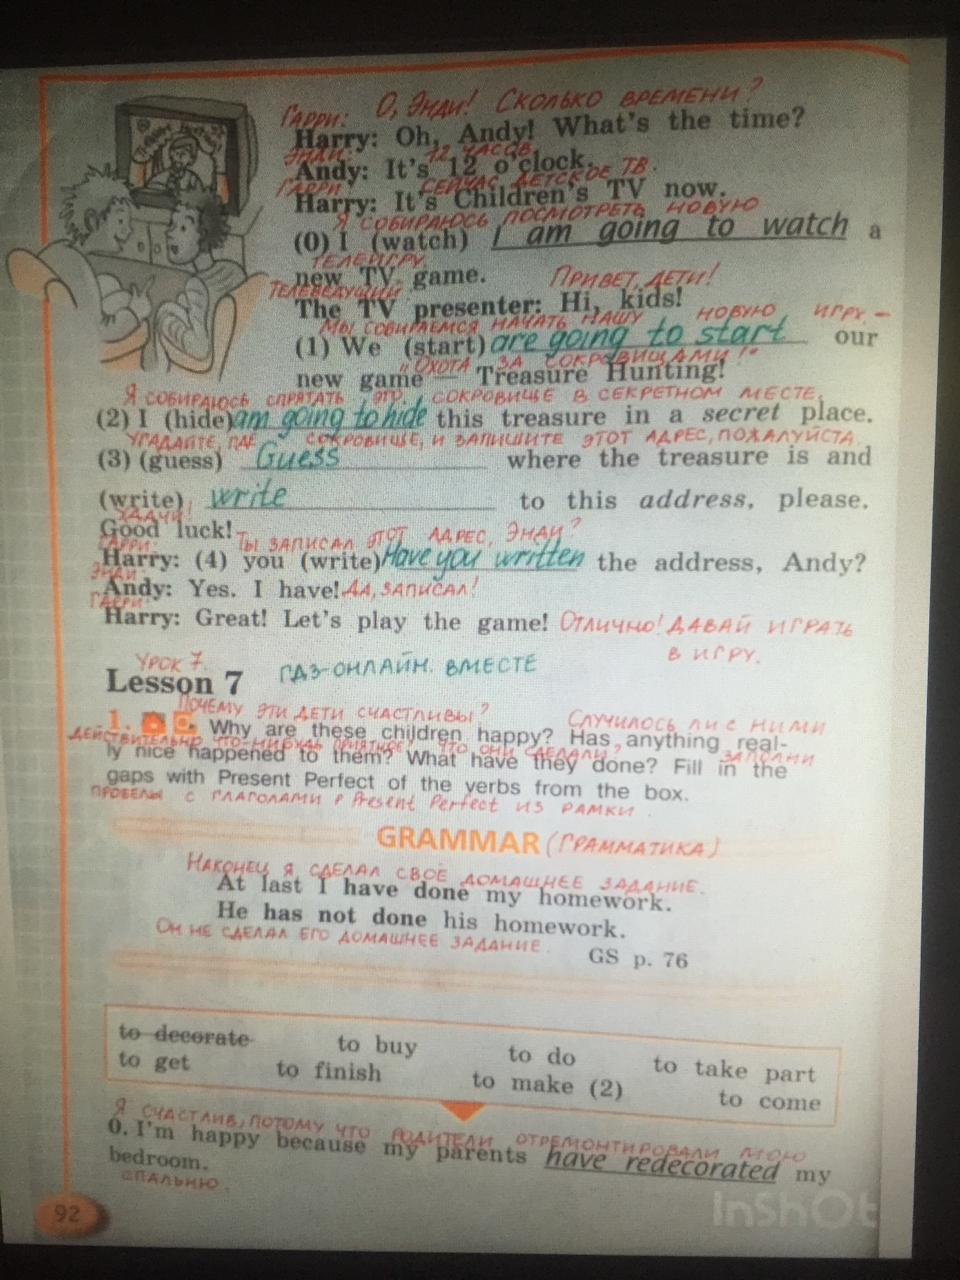 Гарри: О, Энди! Сколько времени?
Harry: Oh, Andy! What's the time?
Энди: 12 часов.
Andy: It's 12 o'clock.
Гарри: Сейчас детское ТВ.
Harry: It's Children's TV now.
Я собираюсь посмотреть новую
(0) I (watch) I am going to watch a
телеигру.
new TV game.
Телеведущий Привет, дети!
The TV presenter: Hi, kids!
Мы собираемся начать нашу новую игру –
(1) We (start) are going to start our
"Охота за сокровищами!"
new game — Treasure Hunting!
Я собираюсь спрятать это сокровище в секретном месте.
(2) I (hide) am going to hide this treasure in a secret place.
Угадайте, где сокровище, и запишите этот адрес, пожалуйста.
(3) (guess) Guess where the treasure is and
(write) write to this address, please.
Удачи!
Good luck!
Гарри: Ты записал этот адрес, Энди?
Harry: (4) you (write) Have you written the address, Andy?
Энди:
Andy: Yes. I have! Да, записал!
Гарри:
Harry: Great! Let's play the game! Отлично! Давай играть
в игру.
Урок 7.
Lesson 7 ГДЗ-онлайн. Вместе
Почему эти дети счастливы? Случилось ли с ними
1. Why are these children happy? Has anything real-
действительно что-нибудь приятное? Что они сделали? Заполни
ly nice happened to them? What have they done? Fill in the
gaps with Present Perfect of the verbs from the box.
пробелы с глаголами в Present Perfect из рамки.
GRAMMAR (Грамматика)
Наконец я сделал своё домашнее задание.
At last I have done my homework.
He has not done his homework.
Он не сделал его домашнее задание.
GS p. 76
to decorate to buy to do to take part
to get to finish to make (2) to come
Я счастлив, потому что родители отремонтировали мою
0. I'm happy because my parents have redecorated my
bedroom.
спальню.
92
InShOt